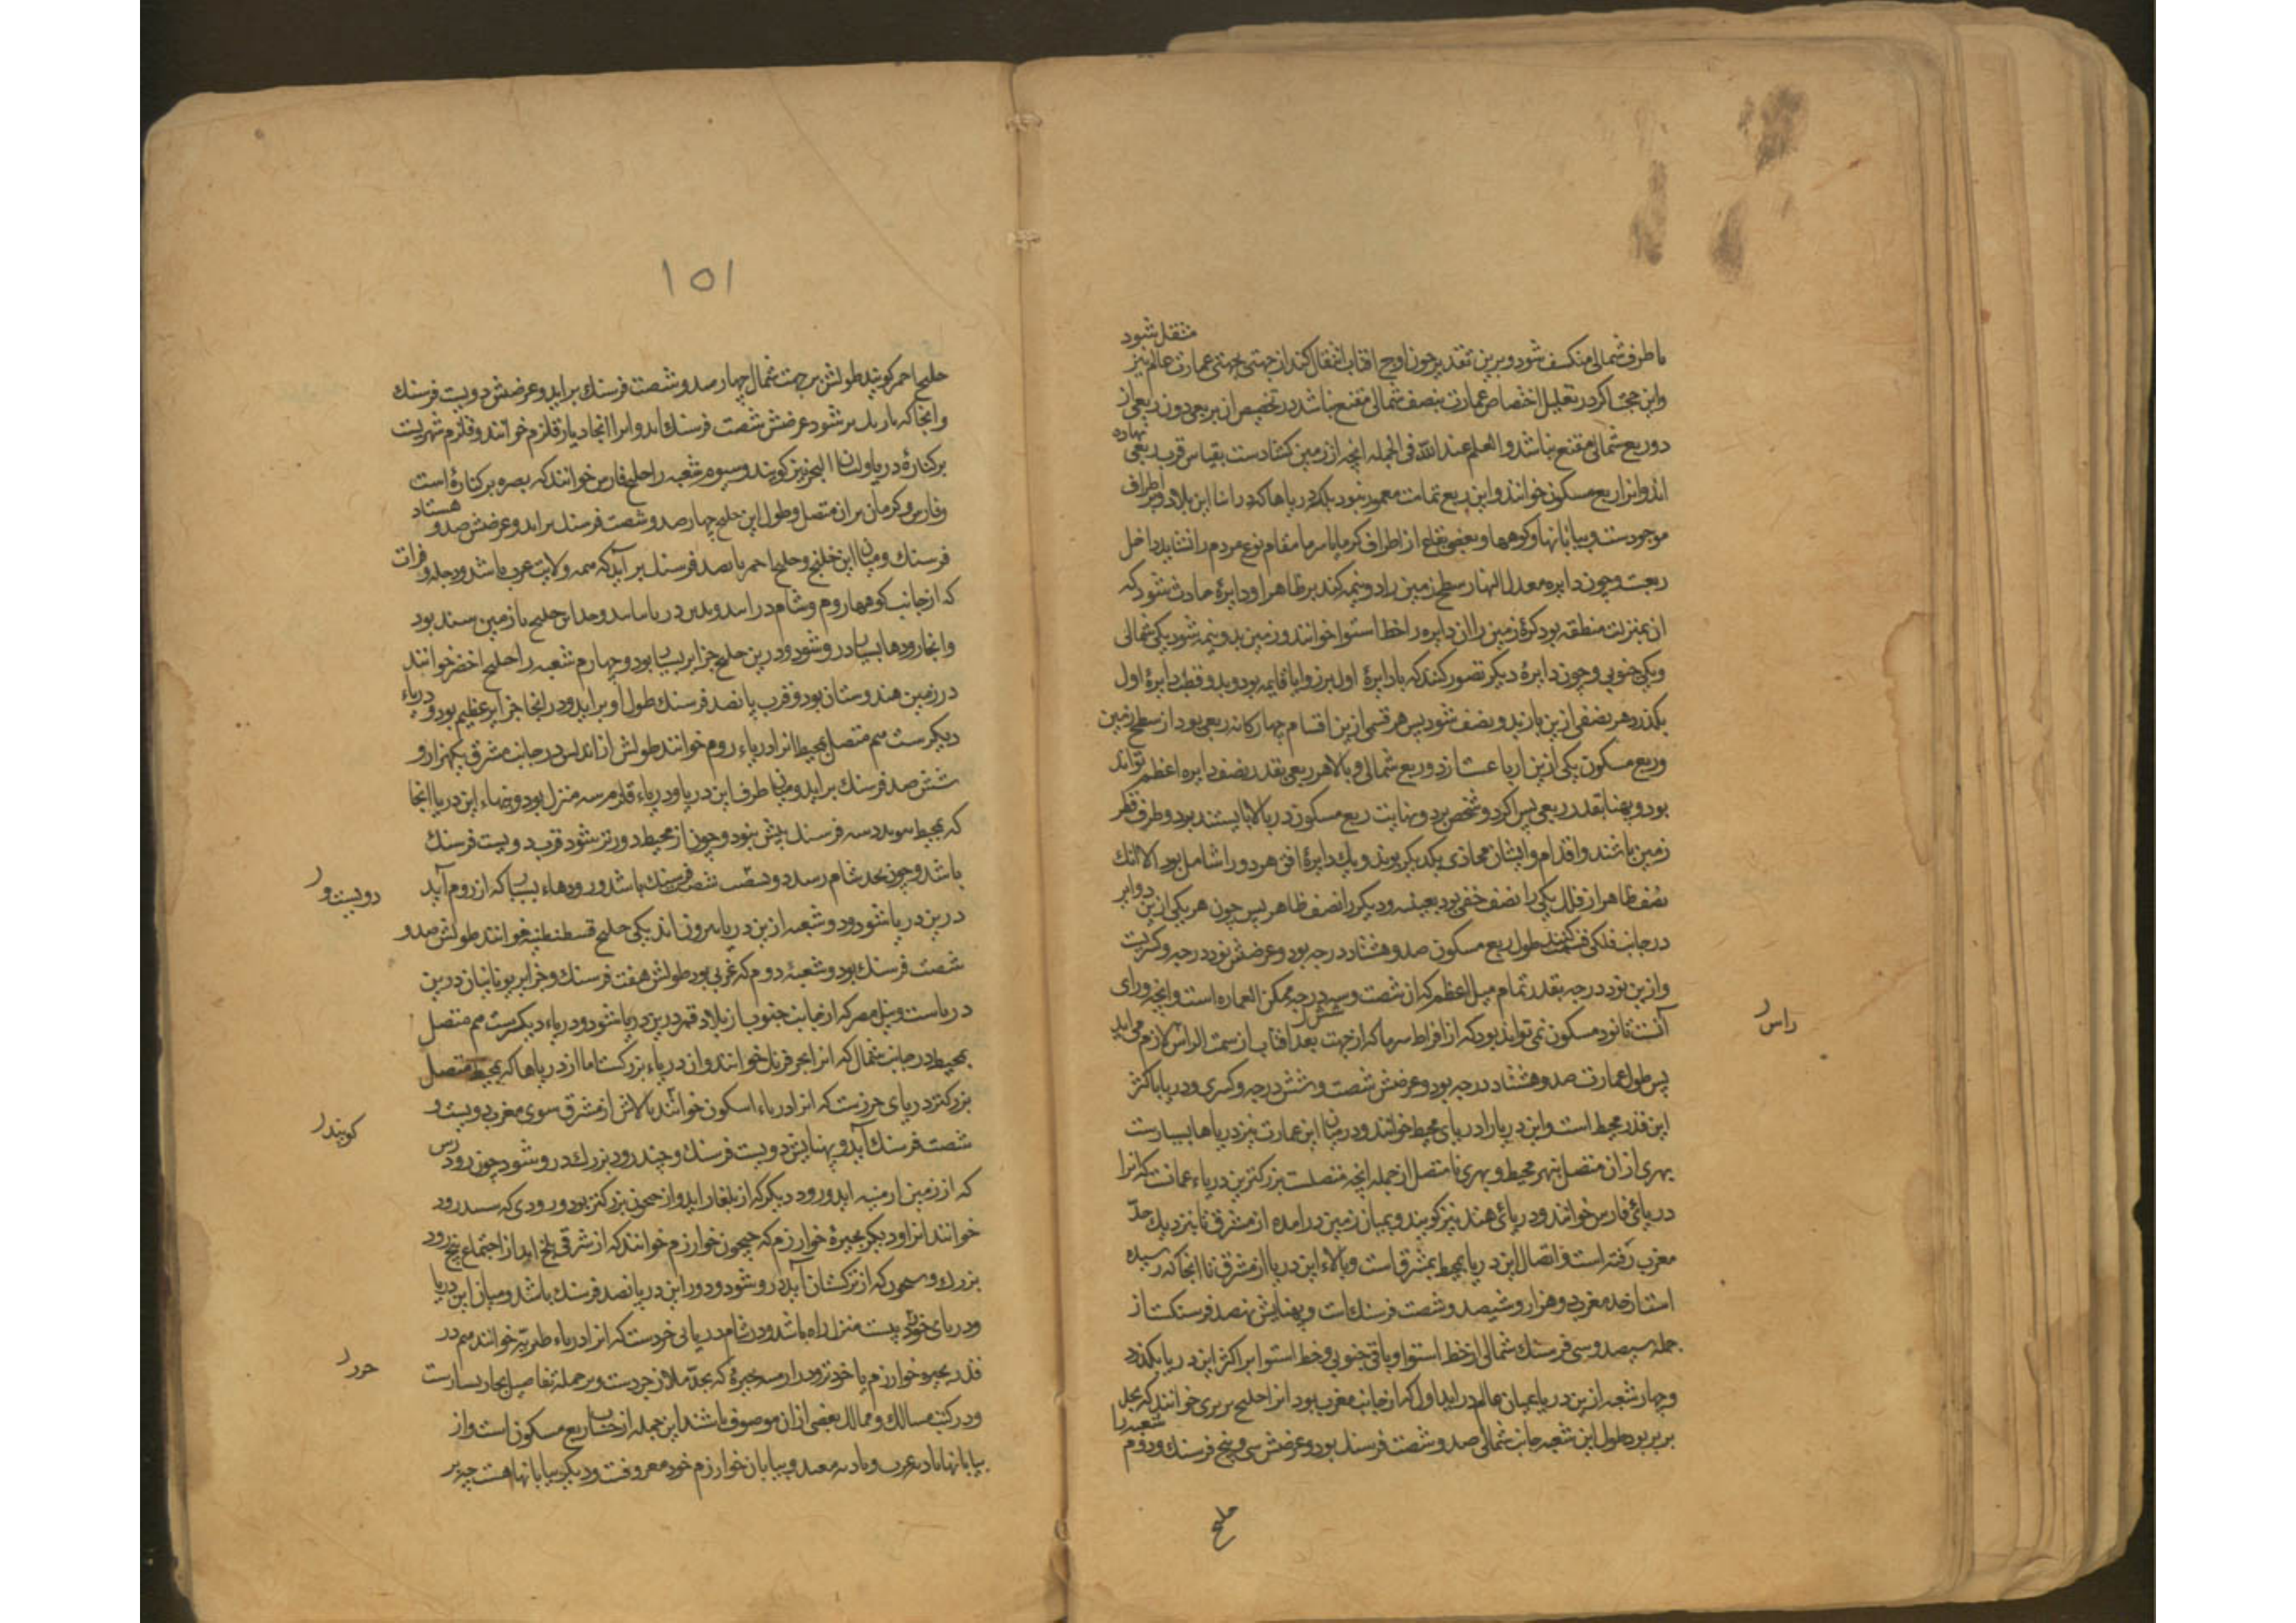 منتقل شود
با طرف شمالی منکسف شود و برین تقدیر چون اوج آفتاب انتقال کند از جهتی بجهتی عمارت عالم نیز
واین حجت اگر در تعلیل اختصاص عمارت بنصف شمالی مقنع باشد در تخصیص از بربعی دون ربعی از
دو ربع شمالی مقنع نباشد والعلم عند الله فی الجمله انچه از زمین کشادست بقیاس قرب ربعی
نهاده
اند وانرا ربع مسکون خوانند واین ربع تمامت معمور نبود بلکه دریاها که در اثنا این بلاد و اطراف
موجودست و بیابانها و کوهها و بعضی بقاع از اطراف که گرما یا سرما مقام نوع مردم را نشاید داخل
ربعست و چون دایره معدل النهار سطح زمین را دو نیمه کند بر ظاهر او دایرهٔ حادث شود که
ان بمنزلت منطقه بود کرهٔ زمین را ان دایره را خط استوا خوانند و زمین بدو نیمه شود یکی شمالی
و یکی جنوبی و چون دایرهٔ دیگر تصور کنند که با دایرهٔ اول بر زوایا قایمه بود و بدو قطب دایرهٔ اول
بکذرد هر نصفی ازین باز بدو نصف شود پس هر قسمی ازین اقسام چهارکانه ربعی بود از سطح زمین
و ربع مسکون یکی ازین ارباعست از دو ربع شمالی و بالا هر ربعی بقدر نصف دایره اعظم تواند
بود و پهنا بقدر ربعی پس اکر دو شخص برد و نهایت ربع مسکون در بالا بایستند بر دو طرف قطر
زمین باشند و اقدام وایشان محاذی یکدیکر بوند و یک دایرهٔ افق هر دو را شامل بود الا انک
نصف ظاهر از فلک یکی را نصف خفی بود بعینه و دیکر را نصف ظاهر پس چون هر یکی ازین دوایر
در جانب فلکی قسمت کنند طول ربع مسکون صد و هشتاد درجه بود و عرضش نود درجه و کریت
وازین نود درجه بقدر تمام میل اعظم که ان شصت و سه درجه ممکن العماره است وانچه ورای
شش
آنست تا نود مسکون نمی تواند بود که از افراط سرما که از جهت بعد آفتاب از سمت الراس لازم می اید
راس
پس طول عمارت صد و هشتاد درجه بود و عرضش شصت و شش درجه و کسری و دریا باکثر
این قدر محیط است واین دریا را دریای محیط خوانند و در میان این عمارت نیز دریاها بسیارست
بهری از ان متصل بهر محیط و بهری نا متصل از جمله انچه متصلست بزرکترین دریاء عمانست که انرا
دریائی فارس خوانند و دریائی هند نیز کویند و بمیان زمین درامده از مشرق تا بنزدیک حد
مغرب رفته است و اتصال این دریا بمحیط بمشرق است و بالاء این دریا از مشرق تا انجا که رسیده
است از حد مغرب دو هزار و شیصد و شصت فرسنک است و پهنایش نهصد فرسنکست از
جمله سیصد و سی فرسنک شمالی از خط استوا و باقی جنوبی و خط استوا بر اکثر این دریا بکذرد
و چهار شعبه ازین دریا بمیان عالم در اید اول که از جانب مغرب بود انرا خلیج بربری خوانند که بحد
بربر بود طول این شعبه جانب شمالی صد و شصت فرسنک بود و عرضش سی و پنج فرسنک و دوم
شعبه را
خلیج
۱۵۱
خلیج احمر کویند طولش بر جهت شمال چهار صد و شصت فرسنک براید و عرضش دویست فرسنک
وانجا که باریک تر شود عرضش شصت فرسنک اید وانرا انجا دریاء قلزم خوانند و قلزم شهریست
بر کنارهٔ دریا ولسان البحر نیز کویند و سیوم شعبه را خلیج فارس خوانند که بصره بر کنارهٔ است
و فارس و کرمان بران متصل و طول این خلیج چهار صد و شصت فرسنک براید و عرضش صد و هشتاد
فرسنک و میان این خلیج و خلیج احمر پانصد فرسنک بر آید که همه ولایت عرب باشد و دجله و فرات
که از جانب کوهها روم و شام در آید و بدین دریا و حد این خلیج با زمین سند بود
وانجا رودها بسیار در و شود و درین خلیج جزایر بسیار بود و چهارم شعبه را خلیج اخضر خوانند
در زمین هندوستان بود و قرب پانصد فرسنک طول او براید و در انجا جزایر عظیم بود و دریاء
دیکرست هم متصل بمحیط انرا دریاء روم خوانند طولش از اندلس در جانب مشرق یکهزار و
شش صد فرسنک براید و میان طرف این دریا و دریاء قلزم سه منزل بود و پهناء این دریا انجا
که بمحیط پیوندد سه فرسنک بیش نبود و چون از محیط دورتر شود قرب دویست فرسنک
باشد و چون بحد شام رسد دویست شصت فرسنک باشد و رودهاء بسیار که از روم آید
دویست و
درین دریا شود و دو شعبه ازین دریا بیرون اند یکی خلیج قسطنطنیه خوانند طولش صد و
شصت فرسنک بود و شعبهٔ دوم که غربی بود طولش هفت فرسنک و جزایر یونانیان درین
دریاست و نیل مصر که از جانب جنوب از بلاد قمر درین دریا شود و دریاء دیکرست هم متصل
بمحیط در جانب شمال که انرا بحر فرنک خوانند وان دریاء بزرکست اما از دریاها که بمحیط متصل
بزرکتر دریای خزرست که انرا دریاء ابسکون خوانند بالاش از مشرق سوی مغرب دویست و
کویند
شصت فرسنک آید و پهنایش دویست فرسنک و چند رود بزرک در و شود چون رود رس
که از زمین ارمنیه اید و رود دیکر که از بلغار اید و از جیحون بزرکتر بود و رودی که سپیدرود
خوانند انرا و دیکر بحیرهٔ خوارزم که جیحون خوارزم خوانند که از شرقی بلخ اید از اجتماع پنج رود
بزرک و سیحون که از ترکستان آید در و شود و دور این دریا صد فرسنک باشد و میان این دریا
و دریای خزر بیست منزل راه باشد و در شام دریائی خردست که انرا دریاء طبریه خوانند هم در
خزر
قدر بحیره خوارزم یا خردتر و در ارمینیه بحیرهٔ که بحد ملازجردست و بر جمله تفاصیل بحار بسیارست
و در کتب مسالک و ممالک بعضی ازان موصوف باشند این جمله از حساب ربع مسکون است واز
بیابانها بادیه عرب و بادیه و بیابان خوارزم خود معروفست و دیکر بیابانها هست چه بر